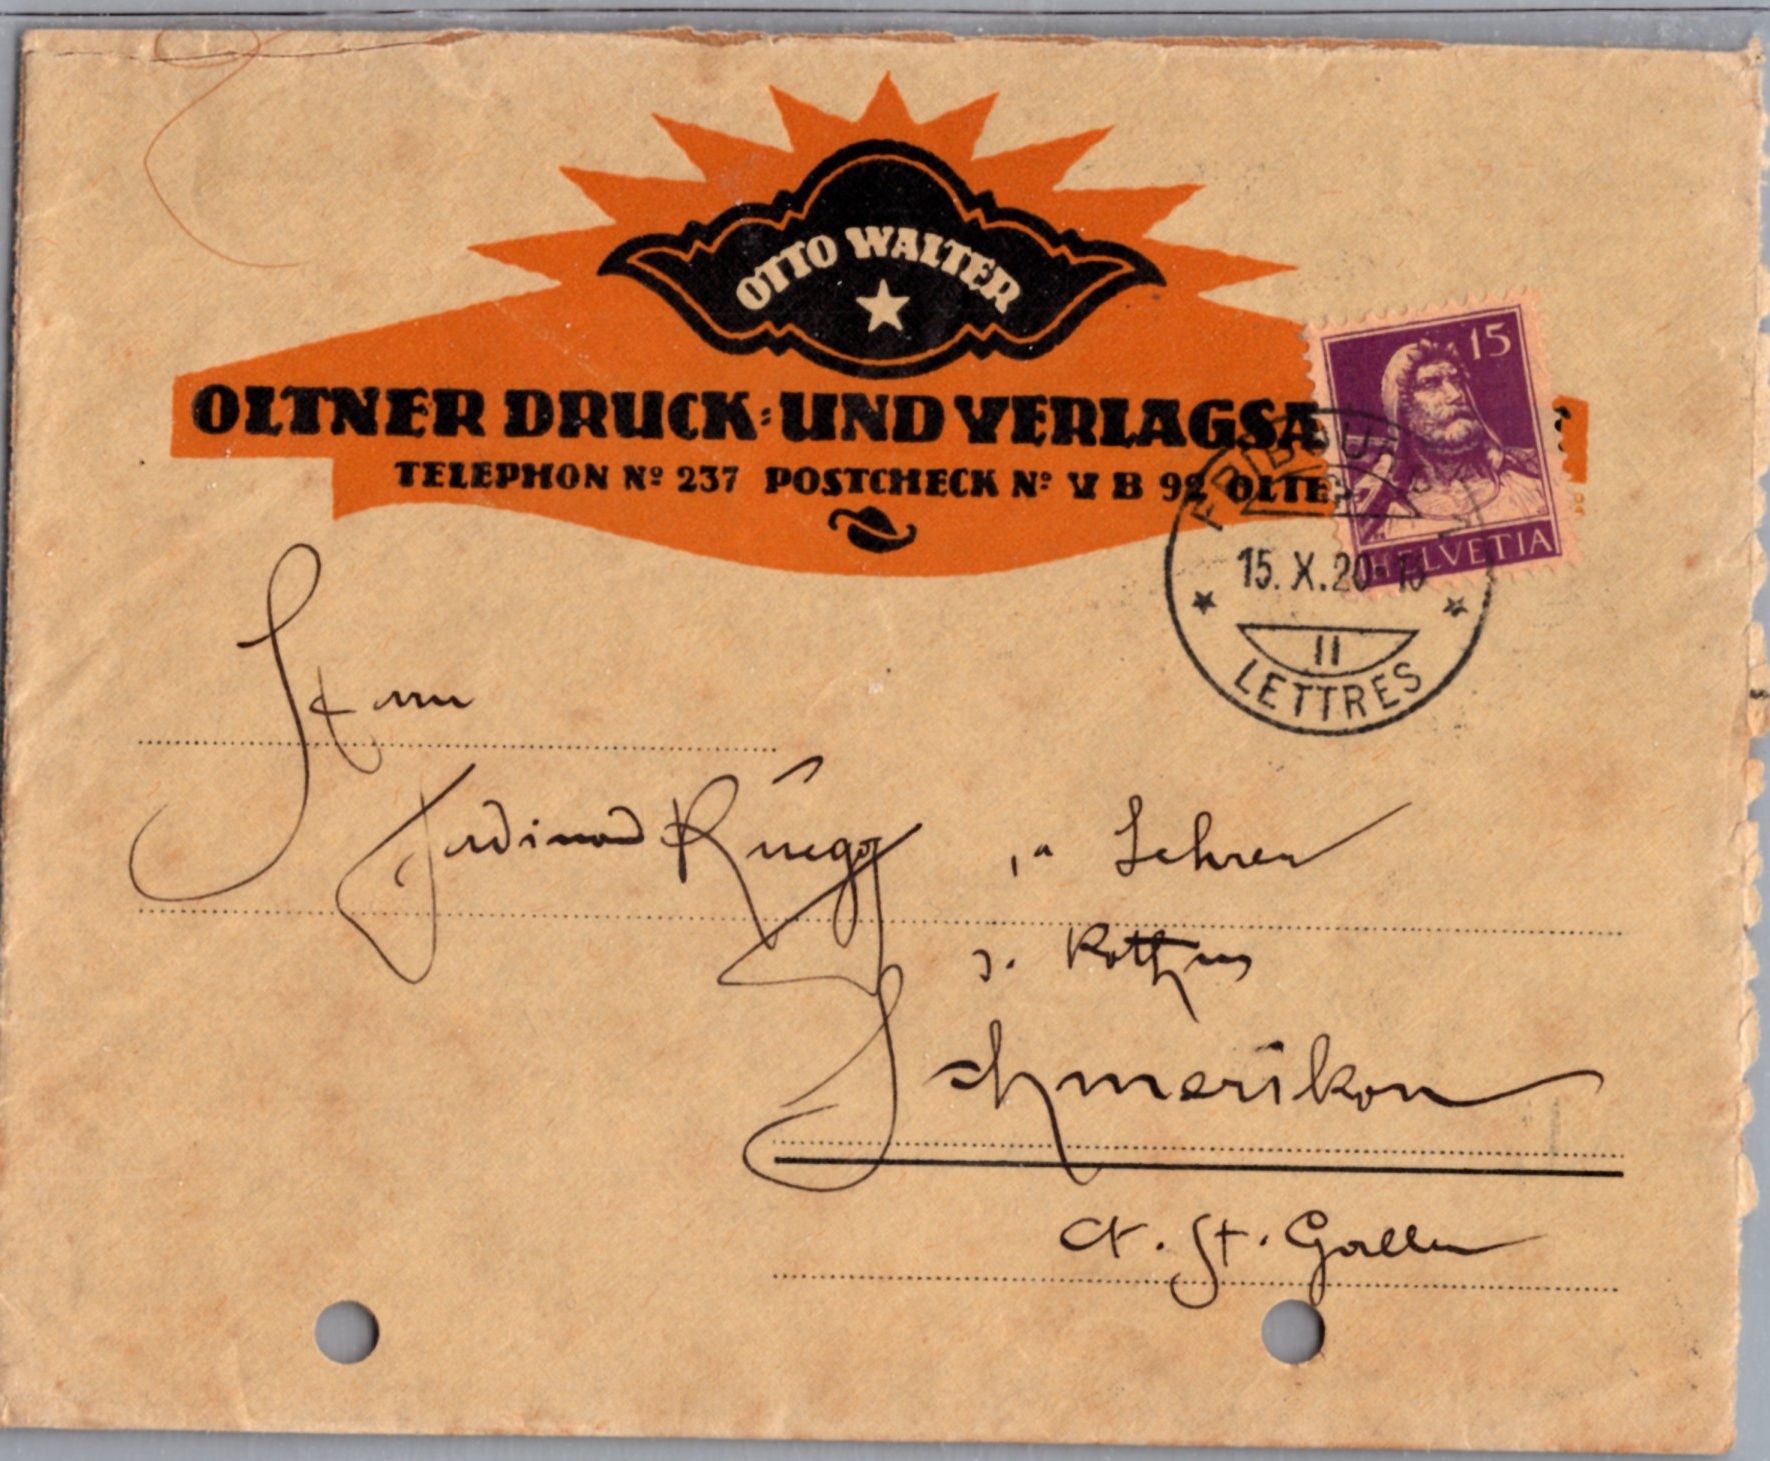 OTTO WALTER
OLTNER DRUCK= UND VERLAGSA
TELEPHON Nº 237 POSTCHECK Nº V B 92 OLTE
15
HELVETIA
FRIBOURG
15. X. 20
II
LETTRES
Herrn
Ferdinand Rüegg Lehrer
z.
Schmerikon
Ct. St. Gallen